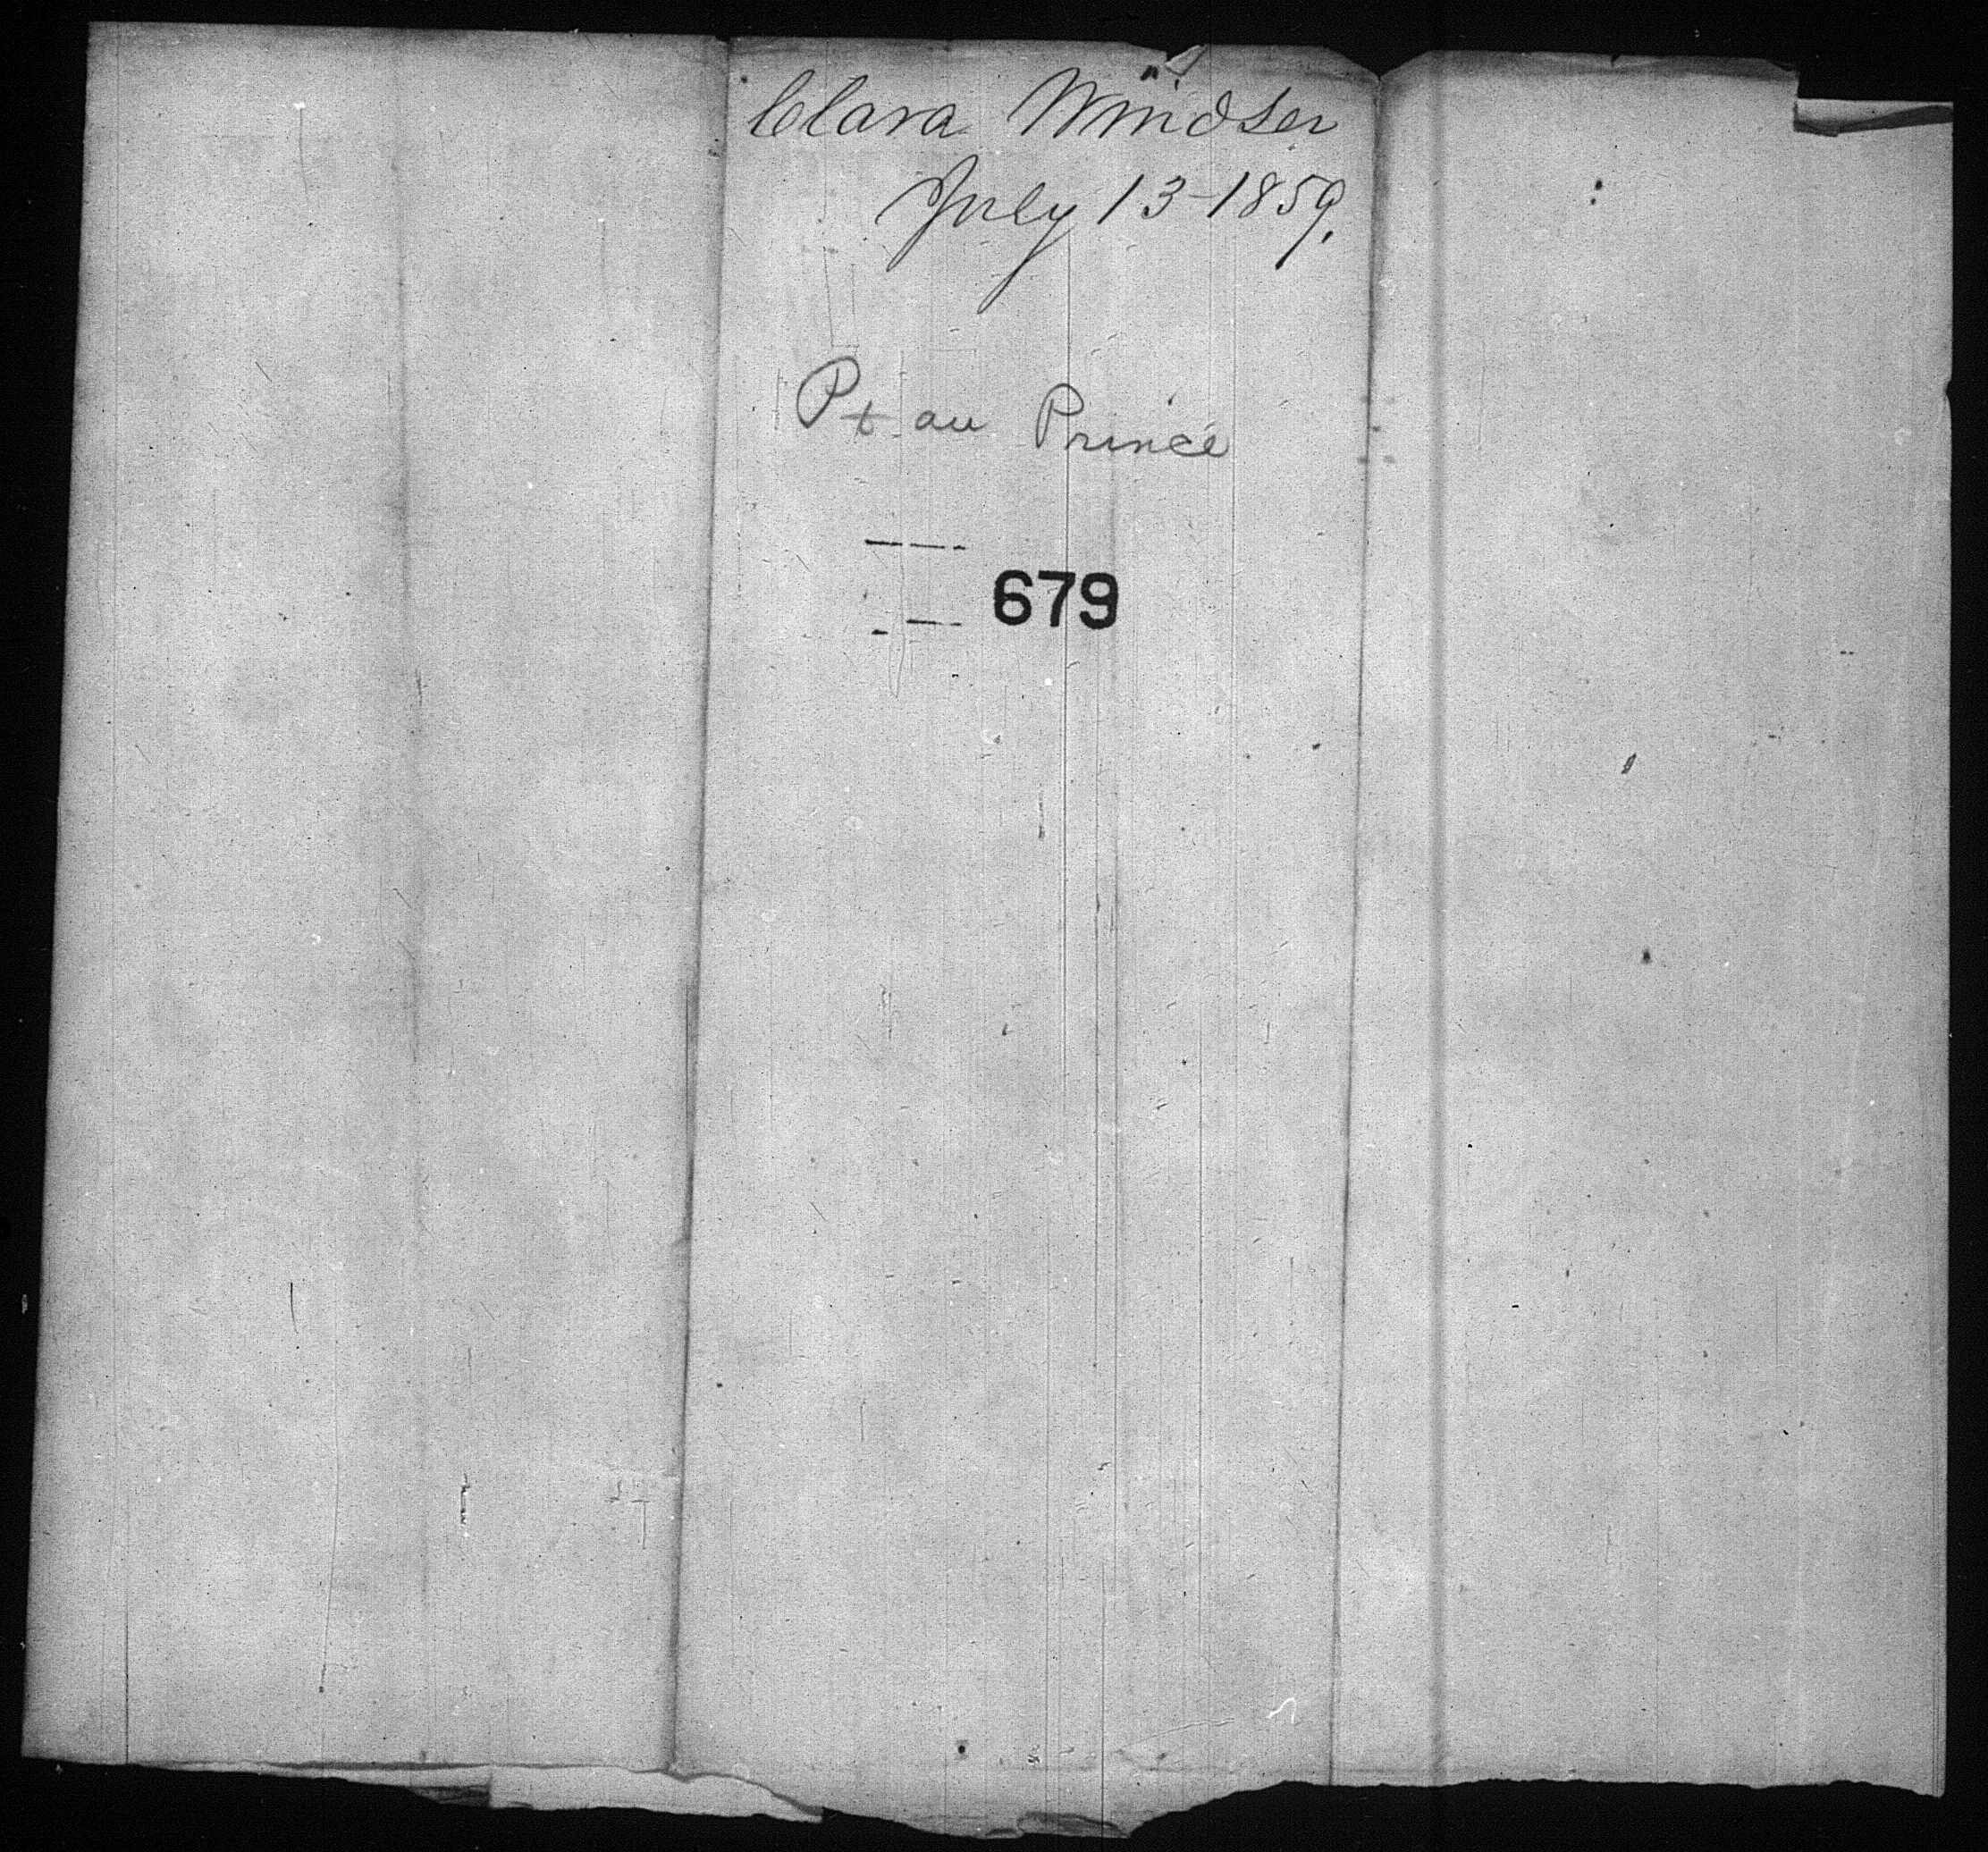 Clara Windsor
July 13-1859.
Pt au Prince
679